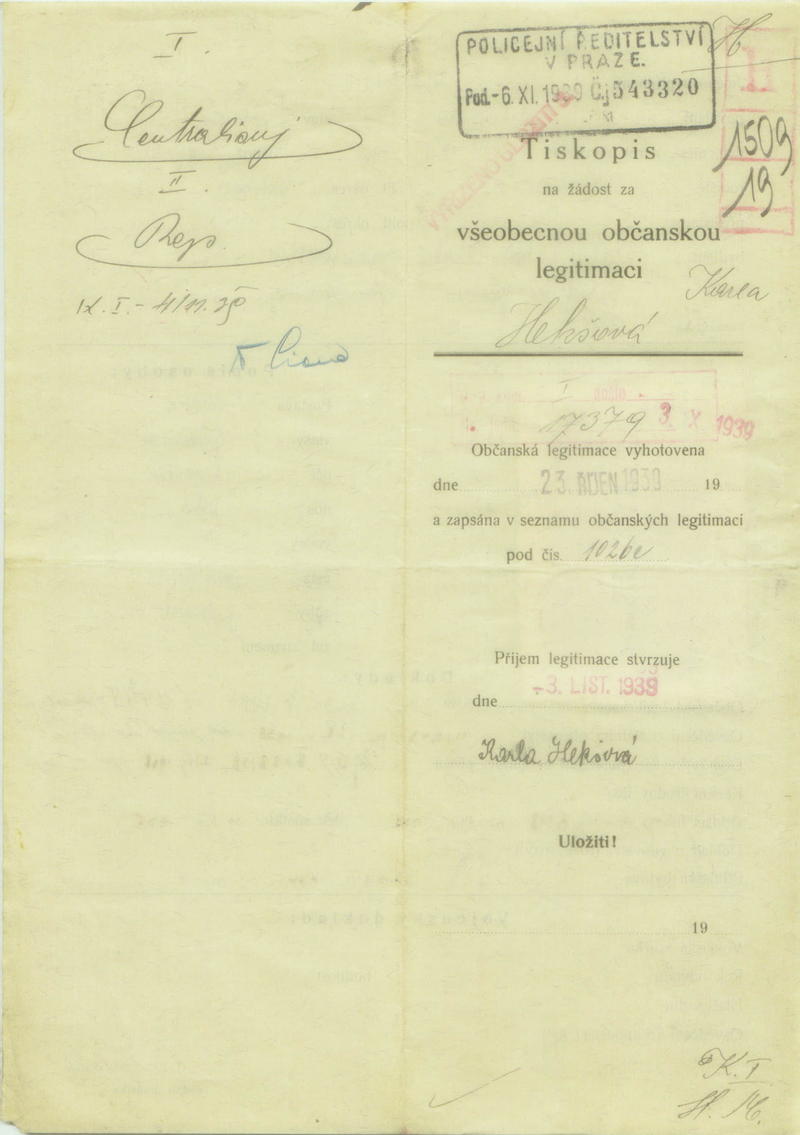 I.
II.
POLICEJNÍ ŘEDITELSTVÍ
V PRAZE.
Pod. -6. XI. 1939 Čj 543320
1509
19
Tiskopis
na žádost za
všeobecnou občanskou
legitimaci
Karla
Hekšová
I
17379 3 X 1939
Občanská legitimace vyhotovena
dne 23. ŘÍJEN 1939 19
a zapsána v seznamu občanských legitimací
pod čís. 1026e
Příjem legitimace stvrzuje
dne -3. LIST. 1939
Karla Hekšová
Uložiti!
19
K. I